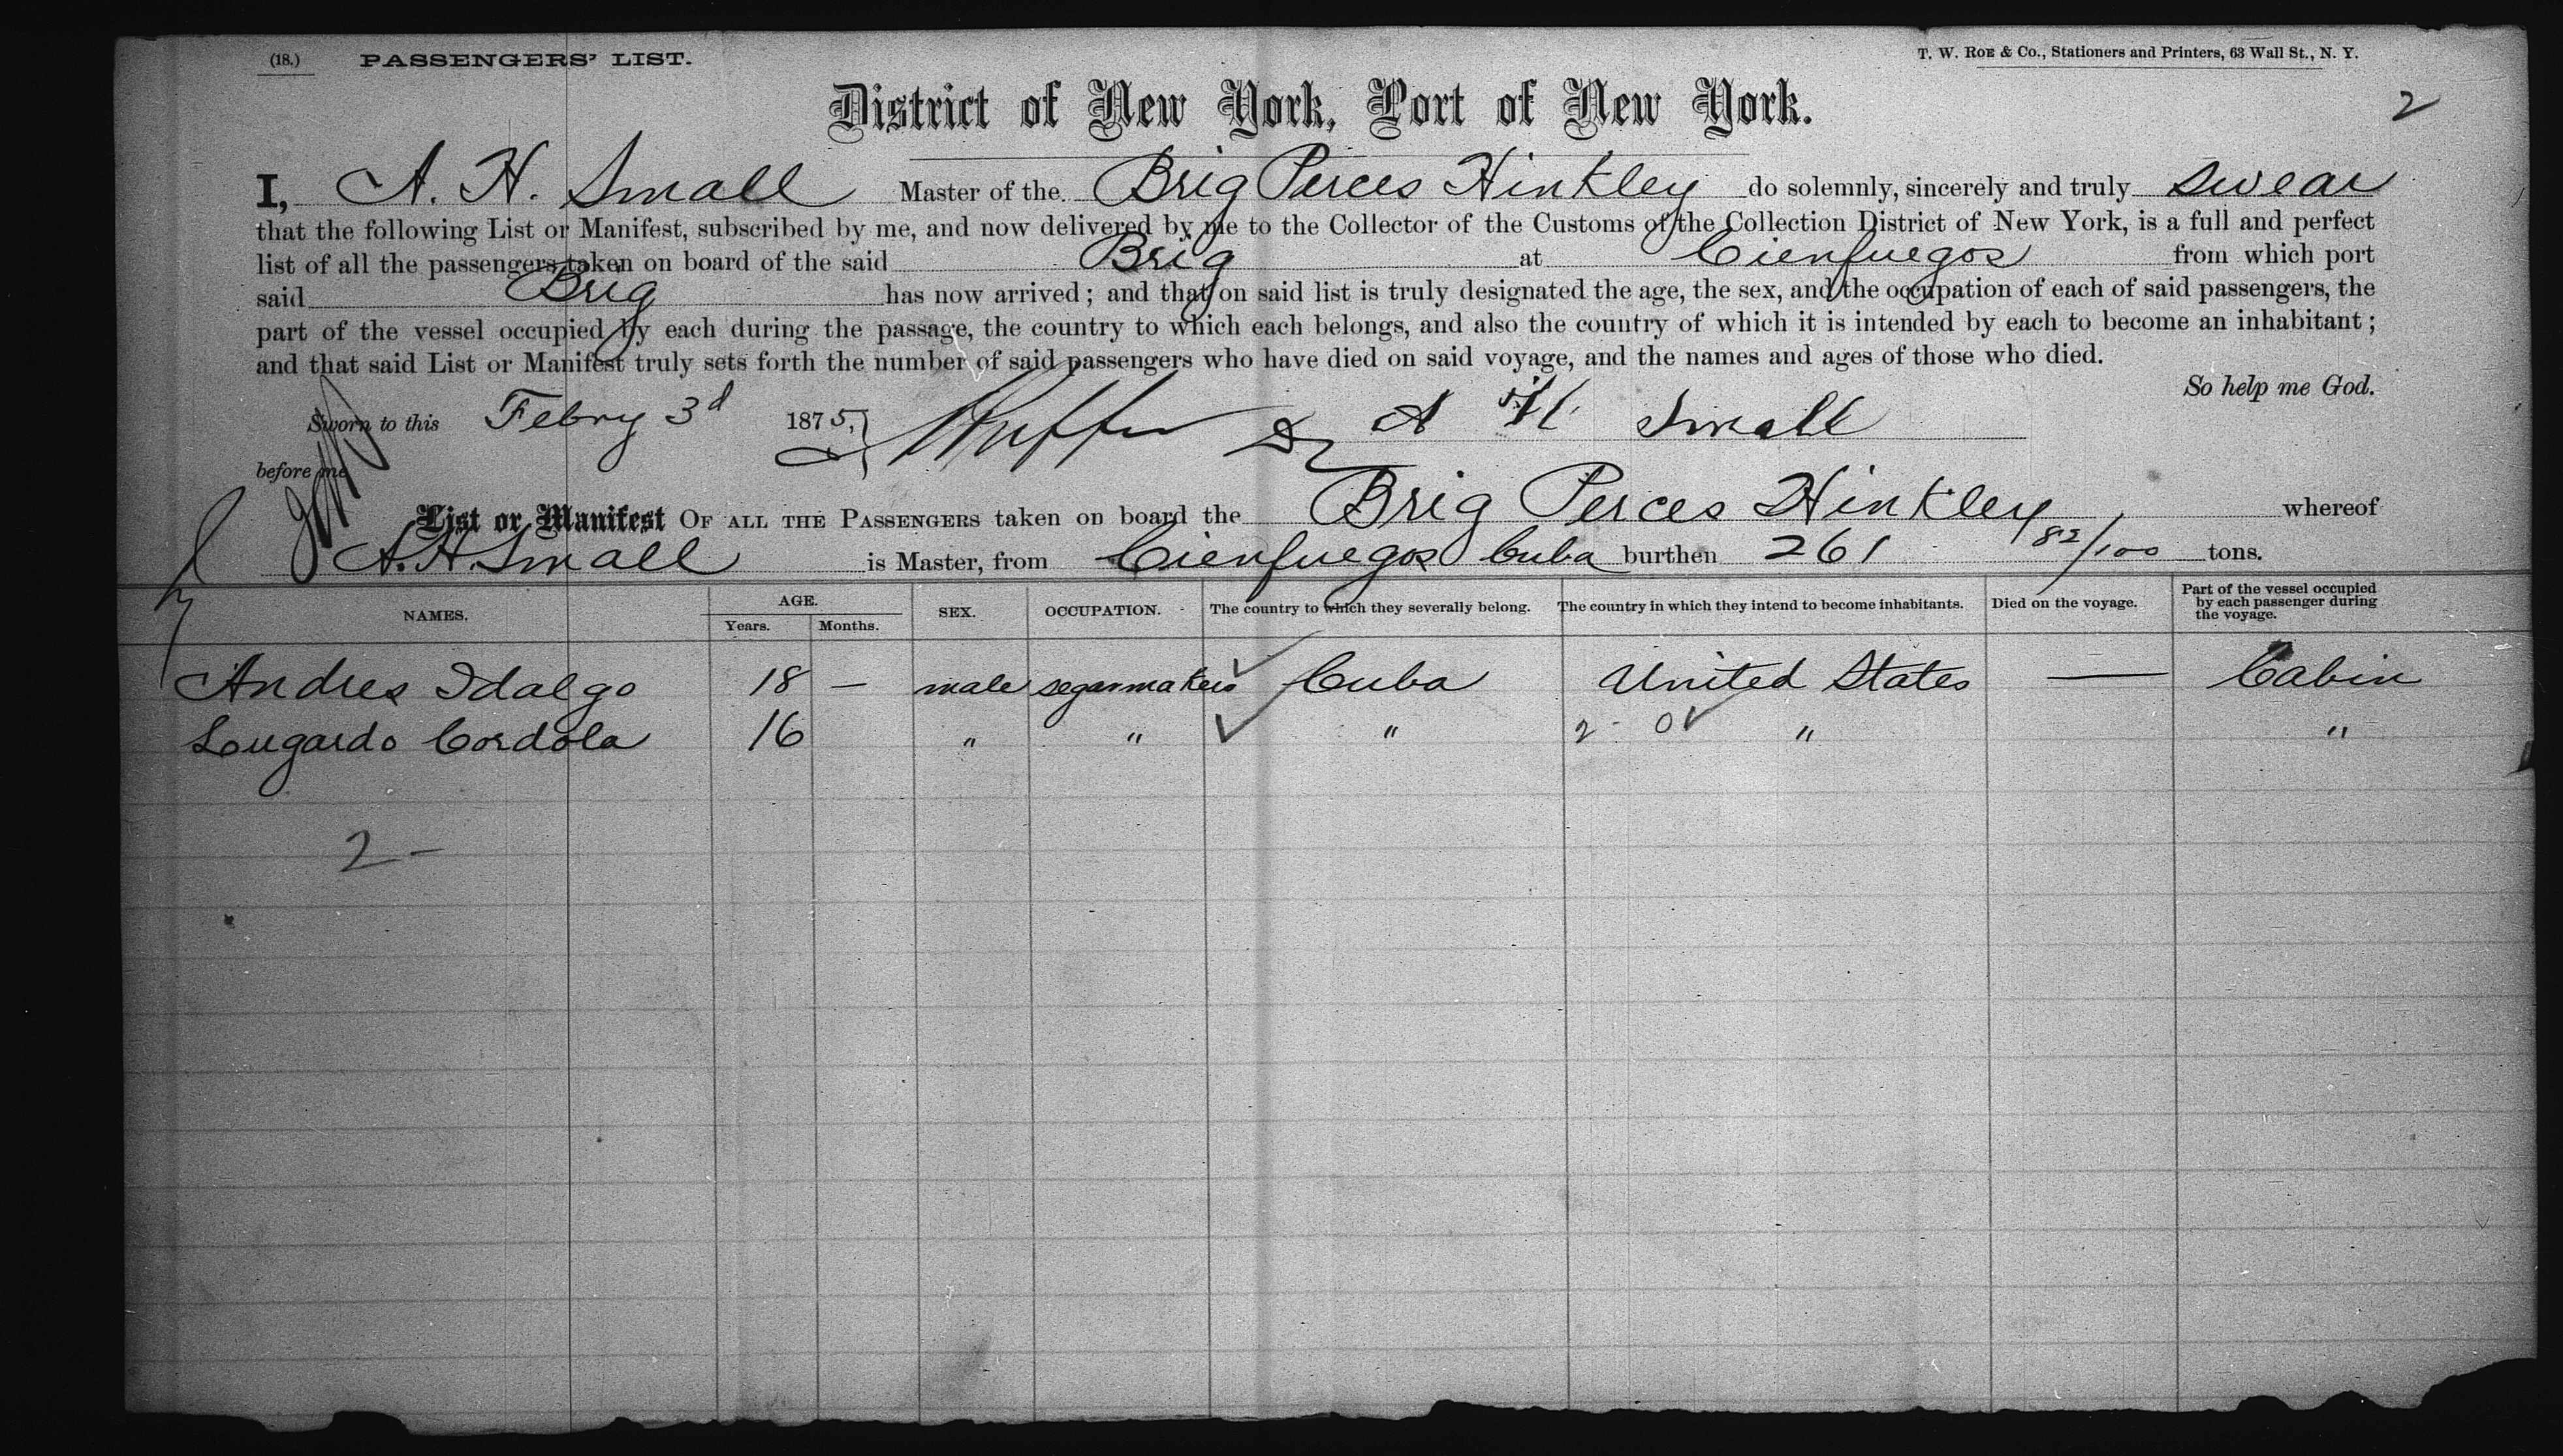 (18.) PASSENGERS' LIST. T. W. ROE & Co., Stationers and Printers, 63 Wall St., N. Y.
District of New York, Port of New York. 2
I, A. H. Small Master of the Brig Perces Hinkley do solemnly, sincerely and truly swear
that the following List or Manifest, subscribed by me, and now delivered by me to the Collector of the Customs of the Collection District of New York, is a full and perfect
list of all the passengers taken on board of the said Brig at Cienfuegos from which port
said Brig has now arrived; and that on said list is truly designated the age, the sex, and the occupation of each of said passengers, the
part of the vessel occupied by each during the passage, the country to which each belongs, and also the country of which it is intended by each to become an inhabitant;
and that said List or Manifest truly sets forth the number of said passengers who have died on said voyage, and the names and ages of those who died.
So help me God.
Sworn to this Febry 3d 1875, A H Small
before me
List or Manifest OF ALL THE PASSENGERS taken on board the Brig Perces Hinkley whereof
A. H. Small is Master, from Cienfuegos Cuba burthen 261 82/100 tons.
NAMES. AGE. Years. Months. SEX. OCCUPATION. The country to which they severally belong. The country in which they intend to become inhabitants. Died on the voyage. Part of the vessel occupied by each passenger during the voyage.
Andres Idalgo 18 — male segarmakers ✓ Cuba United States — Cabin
Lugardo Cordola 16 " " ✓ " 2 - 0 ✓ " "
2 -